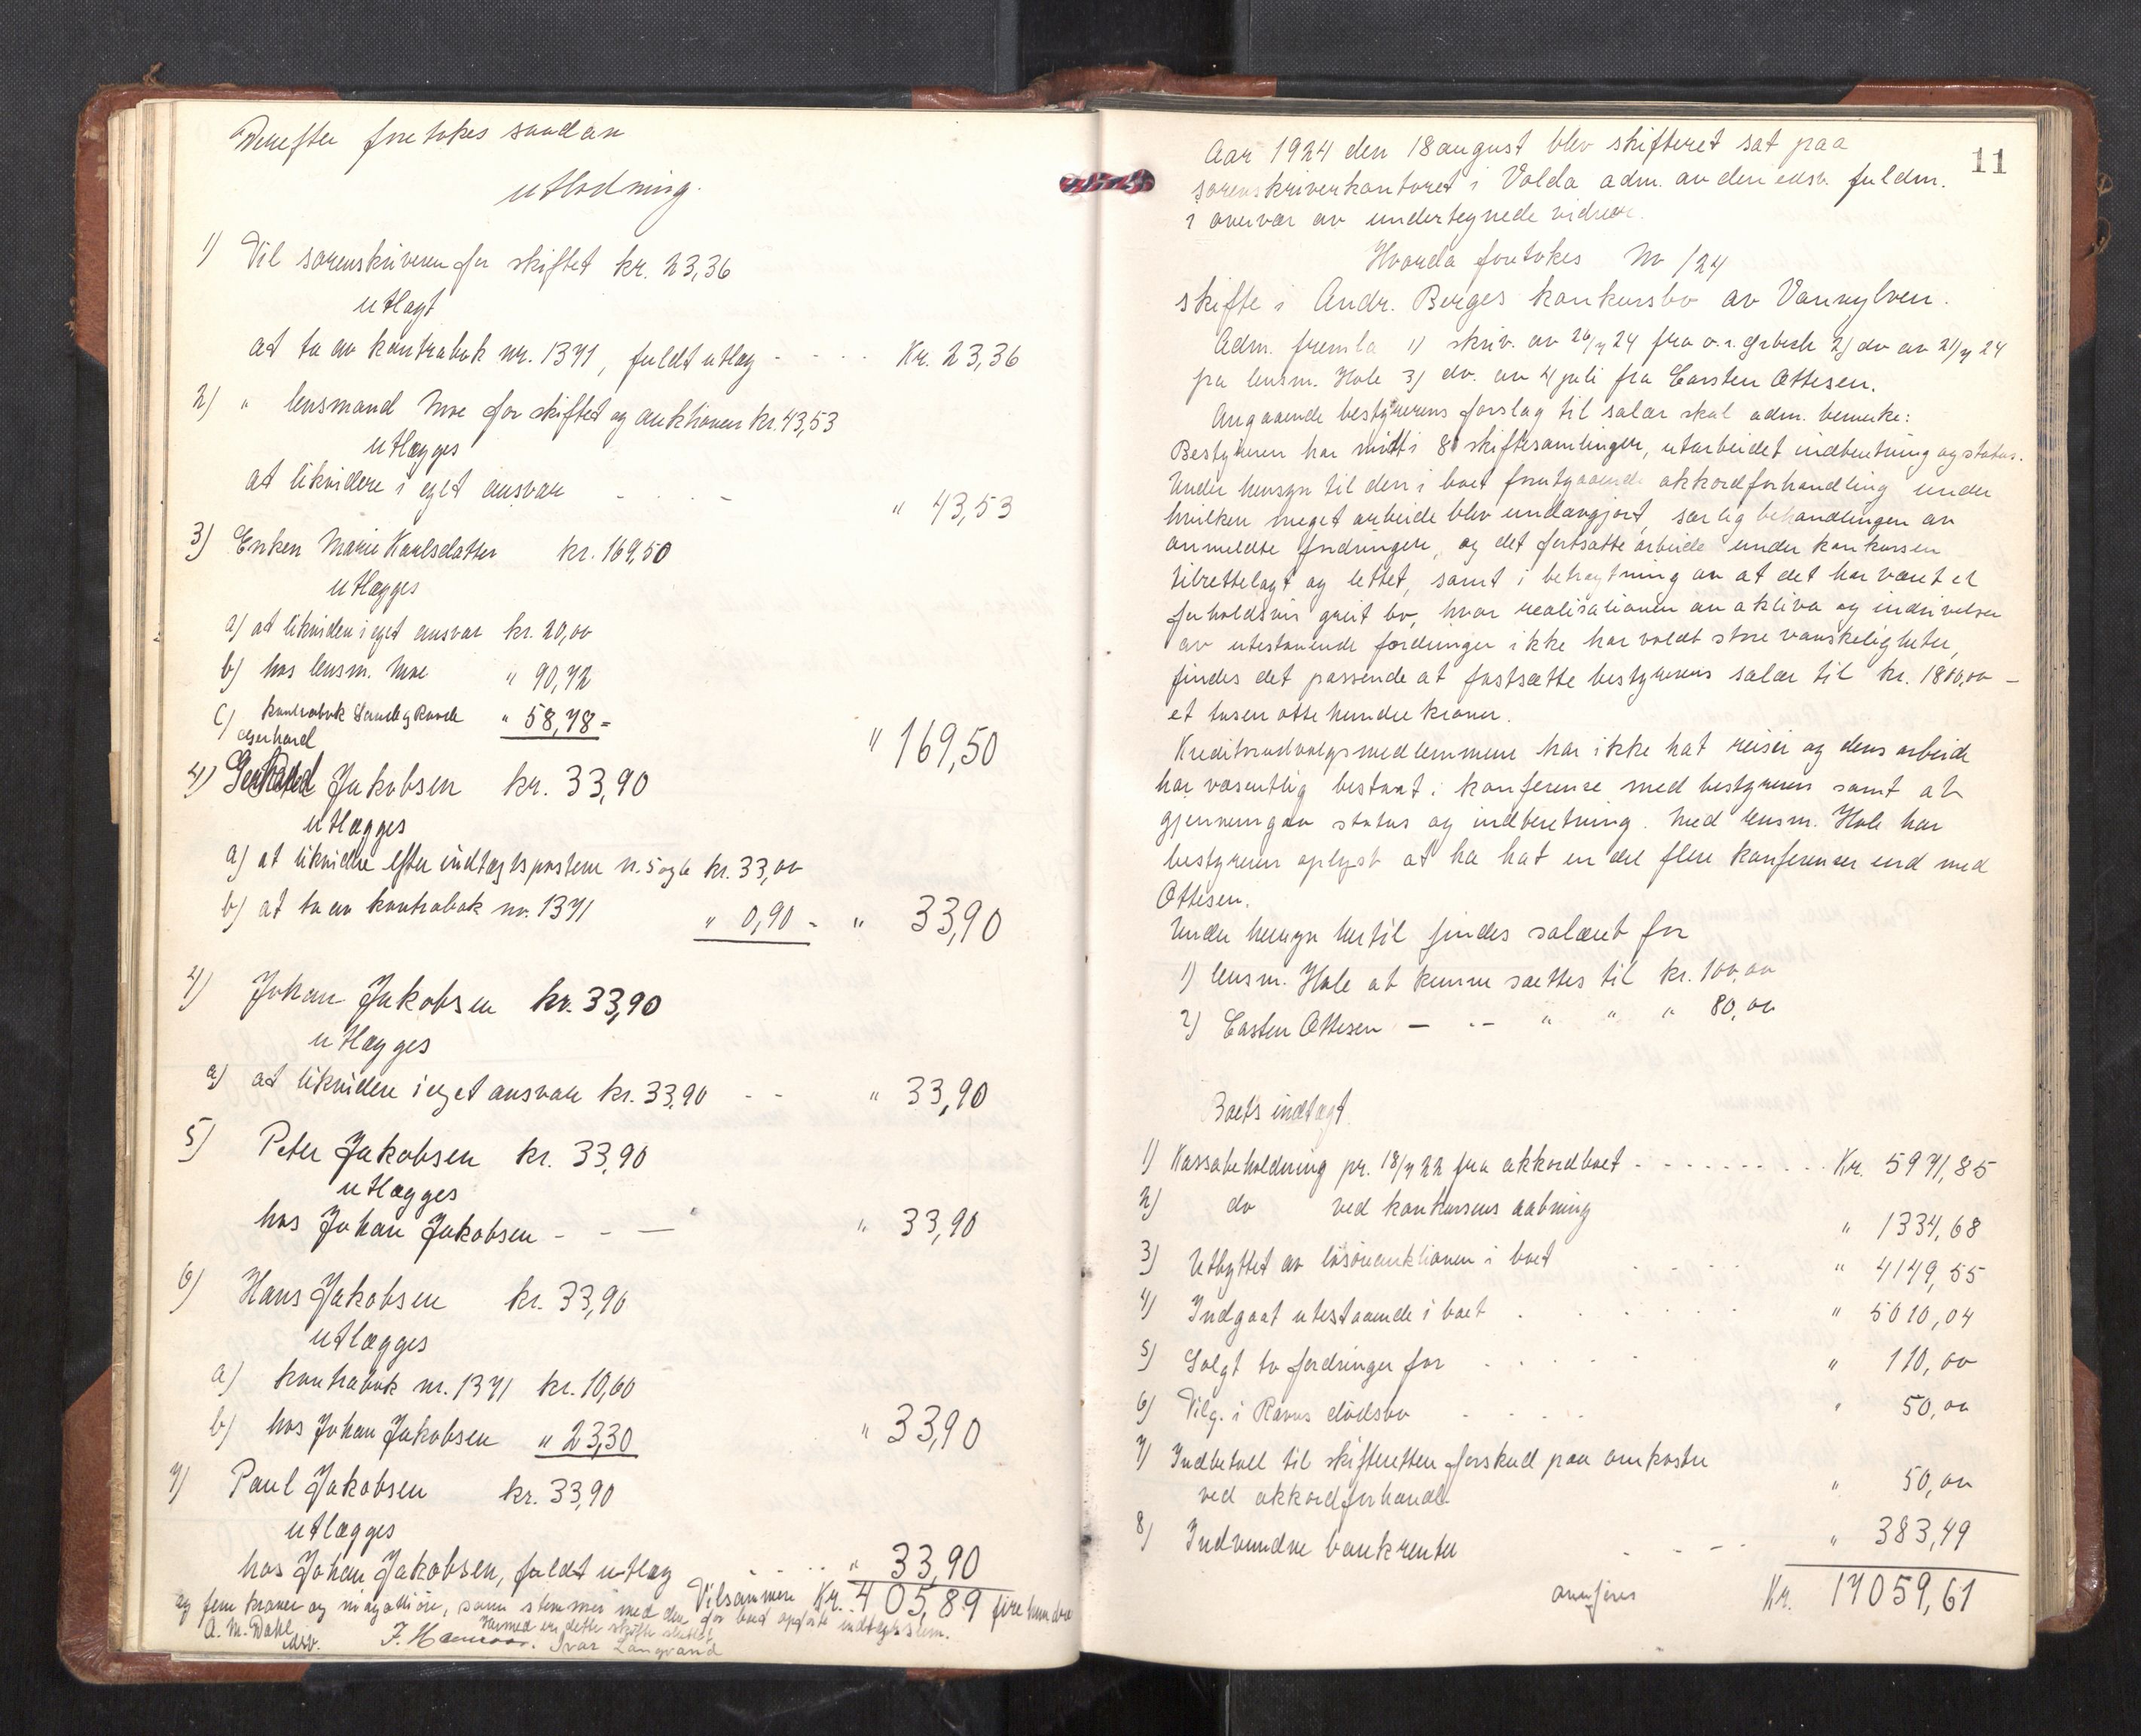 Derefter foretokes saadan
utlodning.
1) Til sorenskriveren for skiftet kr. 23,36
utlagt
at ta av kontrabok nr. 1371, fuldt utlæg - - - - Kr. 23,36
2) " lensmand Moe for skiftet og auktionen kr. 43,53
utlægges
at likvidere i eget ansvar - - - " 43,53
3) Enken Marie Karlsdatter kr. 169,50
utlægges
a) at likvidere i eget ansvar kr. 20,00
b) hos lensm. Moe " 90,72
c) kontrabok " 58,78 = " 169,50
Gerhard
4) Jakobsen kr. 33,90
utlægges
a) at likvidere efter indtægtspostene n. 5 og 6 kr. 33,00
b) at ta av kontrabok nr. 1371 " 0,90 = " 33,90
4) Johan Jakobsen kr. 33,90
utlægges
a) at likvidere i eget ansvar kr. 33,90 - - " 33,90
5) Peter Jakobsen kr. 33,90
utlægges
hos Johan Jakobsen - - — " 33,90
6) Hans Jakobsen kr. 33,90
utlægges
a) kontrabok nr. 1371 kr. 10,60
b) hos Johan Jakobsen " 23,30 " 33,90
7) Paul Jakobsen kr. 33,90
utlægges
hos Johan Jakobsen, fuldt utlæg . . . " 33,90
Tilsammen Kr. 405,89 fire hundre
og fem kroner og niogottiøre, som stemmer med den for boet opførte indtægtssum.
Hermed er dette skifte sluttet.
A. M. Dahl
edsv. Ivar Langvand
11
Aar 1924 den 18 august blev skifteret sat paa
sorenskriverkontoret i Volda adm. av den edsv. fuldm.
i overvær av undertegnede vidner.
Hvorda foretokes No /24
skifte i Andr. Berges konkursbo av Vannylven.
Adm. fremla 1) skriv. av 26/7 24 fra o.r. 2) do av 21/7 24
fra lensm. Hole 3) do. av 4 juli fra Carsten Ottesen.
Angaaende bestyrerens forslag til salær skal adm. bemerke:
Bestyreren har møtt i 8 skiftesamlinger, utarbeidet indberetning og status.
Under hensyn til den i boet forutgaaende akkordforhandling under
hvilken meget arbeide blev undavgjort, særlig behandlingen av
anmeldte fordringer, og det fortsatte arbeide under konkursen
tilrettelagt og lettet, samt i betragtning av at det har været et
forholdsvis greit bo, hvor realisationen av aktiva og indrivelsen
av utestaaende fordringer ikke har voldt store vanskeligheter,
findes det passende at fastsætte bestyrerens salær til kr. 1800,00 –
et tusen otte hundre kroner.
Kreditorudvalgsmedlemmene har ikke hat reiser og deres arbeide
har væsentlig bestaat i konferense med bestyreren samt at
gjennemgaa status og indberetning. Med lensm. Hole har
bestyreren oplyst at ha hat en del flere konferenser end med
Ottesen.
Under hensyn hertil findes salæret for
1) lensm. Hole at kunne sættes til kr. 100,00
2) Carsten Ottesen — -- " " " 80,00
Boets indtægt.
1) Kassabeholdning pr. 18/7 22 fra akkordboet - - - - - - - - Kr. 5971,85
2) do ved konkursens aabning " 1334,68
3) Utbyttet av løsøreauktionen i boet - - - - " 4149,55
4) Indgaat utestaaende i boet . . . . . . " 5010,04
5) Solgt to fordringer for - - - - - " 110,00
6) Tilg. i Ravns dødsbo - - - - " 50,00
7) Indbetalt til skifteretten forskud paa omkostn
ved akkordforhandl. " 50,00
8) Indvundne bankrenter - - - - " 383,49
overføres Kr. 17059,61